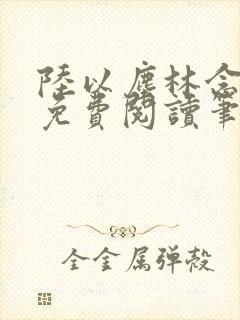 陸以塵林念
免費閱讀筆
全金属弹殼